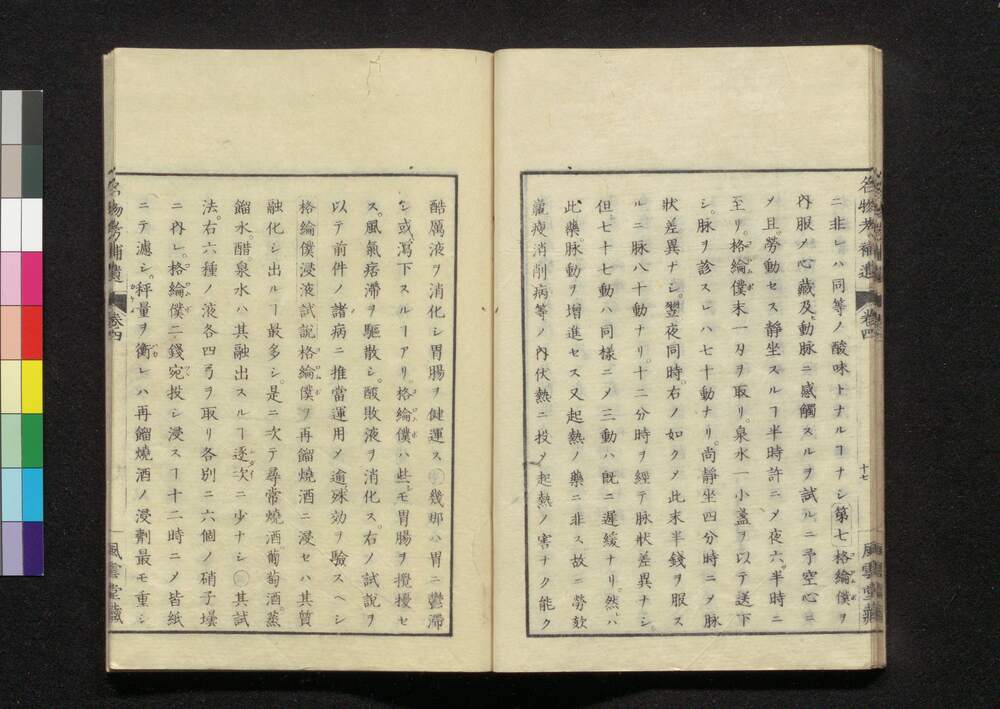 ニ非レハ同等ノ酸味トナルヿナシ第七格綸僕ヲ
内服メ心藏及動脉ニ感觸スルヲ試ルニ予空心ニ
メ且勞動セス靜坐スルヿ半時許ニメ夜六半時ニ
至リ格綸僕末一刄ヲ取リ泉水一小盞ヲ以テ送下
シ脉ヲ診スレハ七十動ナリ尚靜坐四分時ニメ脉
狀差異ナシ翌夜同時右ノ如クメ此末半錢ヲ服ス
ルニ脉八十動ナリ十二分時ヲ經テ脉狀差異ナシ
但七十七動ハ同樣ニメ三動ハ既ニ遲緩ナリ然ハ
此藥脉動ヲ增進セス又起熱ノ藥ニ非ス故ニ勞欬
羸痩消削病等ノ内伏熱ニ投メ起熱ノ害ナク能ク
名物考補遺 卷四 十七 風雲堂藏
酷厲液ヲ消化シ胃腸ヲ健運ス○幾那ハ胃ニ鬱滯
シ或瀉下スルヿアリ格綸僕ハ些シモ胃腸ヲ攪擾セ
ス風氣痞滯ヲ驅散シ酸敗液ヲ消化ス右ノ試說ヲ
以テ前件ノ諸病ニ推當運用メ逾殊効ヲ驗スヘシ
格綸僕浸液試說格綸僕ヲ再餾燒酒ニ浸セハ其質
融化シ出ルヿ最多シ是ニ次テ尋常燒酒葡萄酒蒸
餾水醋泉水ハ其融出スルヿ逐次ニ少ナシ○其試
法右六種ノ液各四弓ヲ取リ各別ニ六個ノ硝子壜
ニ内レ格綸僕二錢宛投シ浸スヿ十二時ニメ皆紙
ニテ濾シ秤量ヲ衡レハ再餾燒酒ノ浸劑最モ重シ
名物考補遺 卷四 風雲堂藏